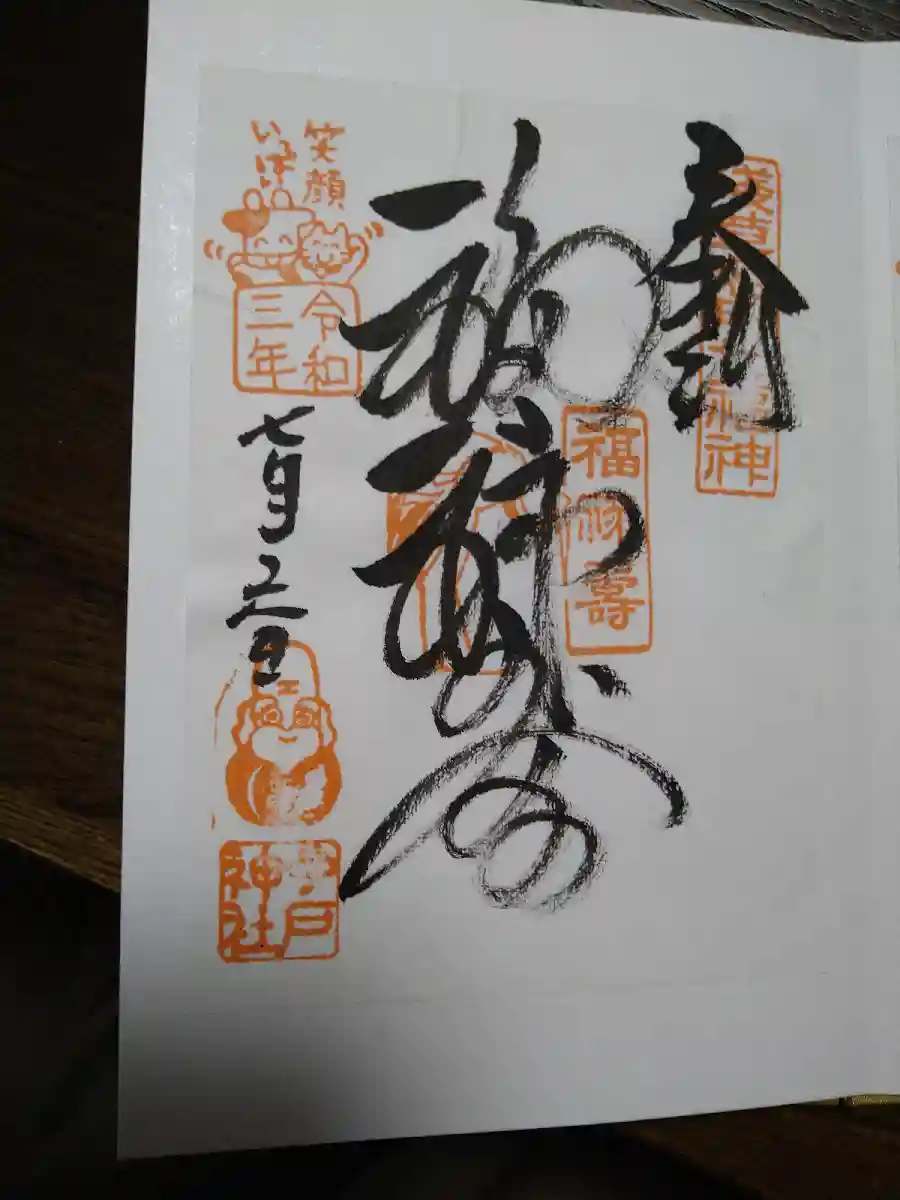 奉拝
福禄壽
福禄寿
笑顔
いっぱい
令和
三年
七月
戸
神社